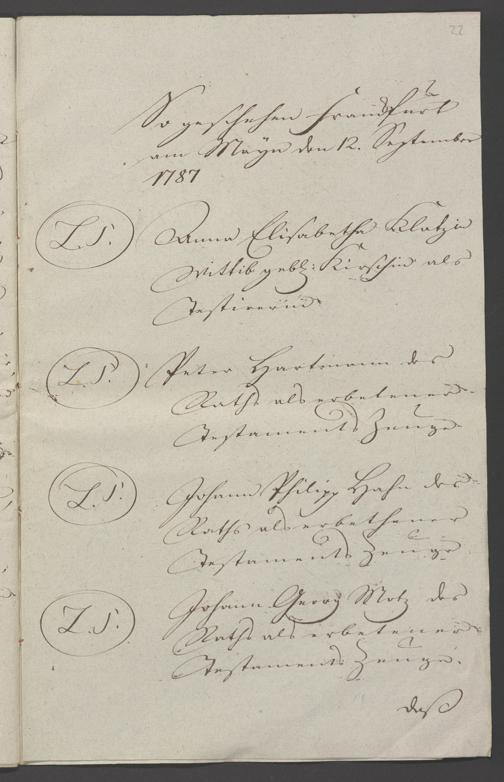 22
So geschehen Franckfurt
am Mayn den 12. September
1787
L. S. Anna Elisabetha Klotzin
Wittib gebh: Kirschin als
Testirerin
L. S. Peter Hartmann des
Raths als erbetener
Testaments Zeuge
L. S. Johann Philipp Hahn des
Raths als erbethener
Testaments Zeuge
L. S. Johann Georg Motz des
Raths als erbetener
Testaments Zeuge.
daß